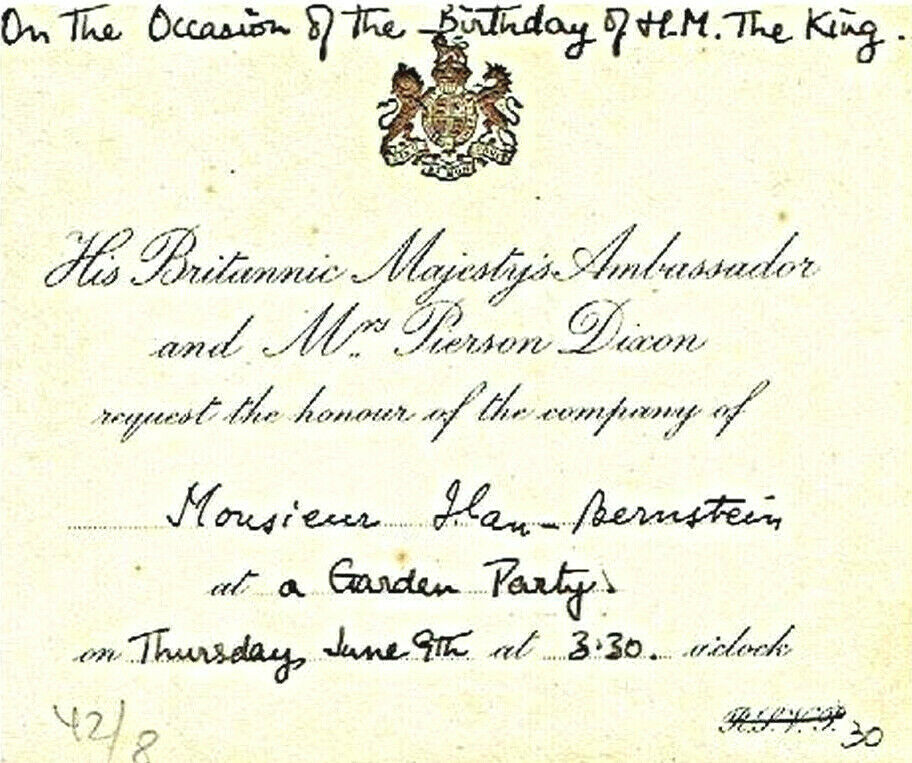 On The Occasion of the Birthday of H.M. The King.
His Britannic Majesty's Ambassador
and Mrs Pierson Dixon
request the honour of the company of
Monsieur Ilan-Bernstein
at a Garden Party.
on Thursday, June 9th at 3.30. o'clock
R.S.V.P.
30
42/8